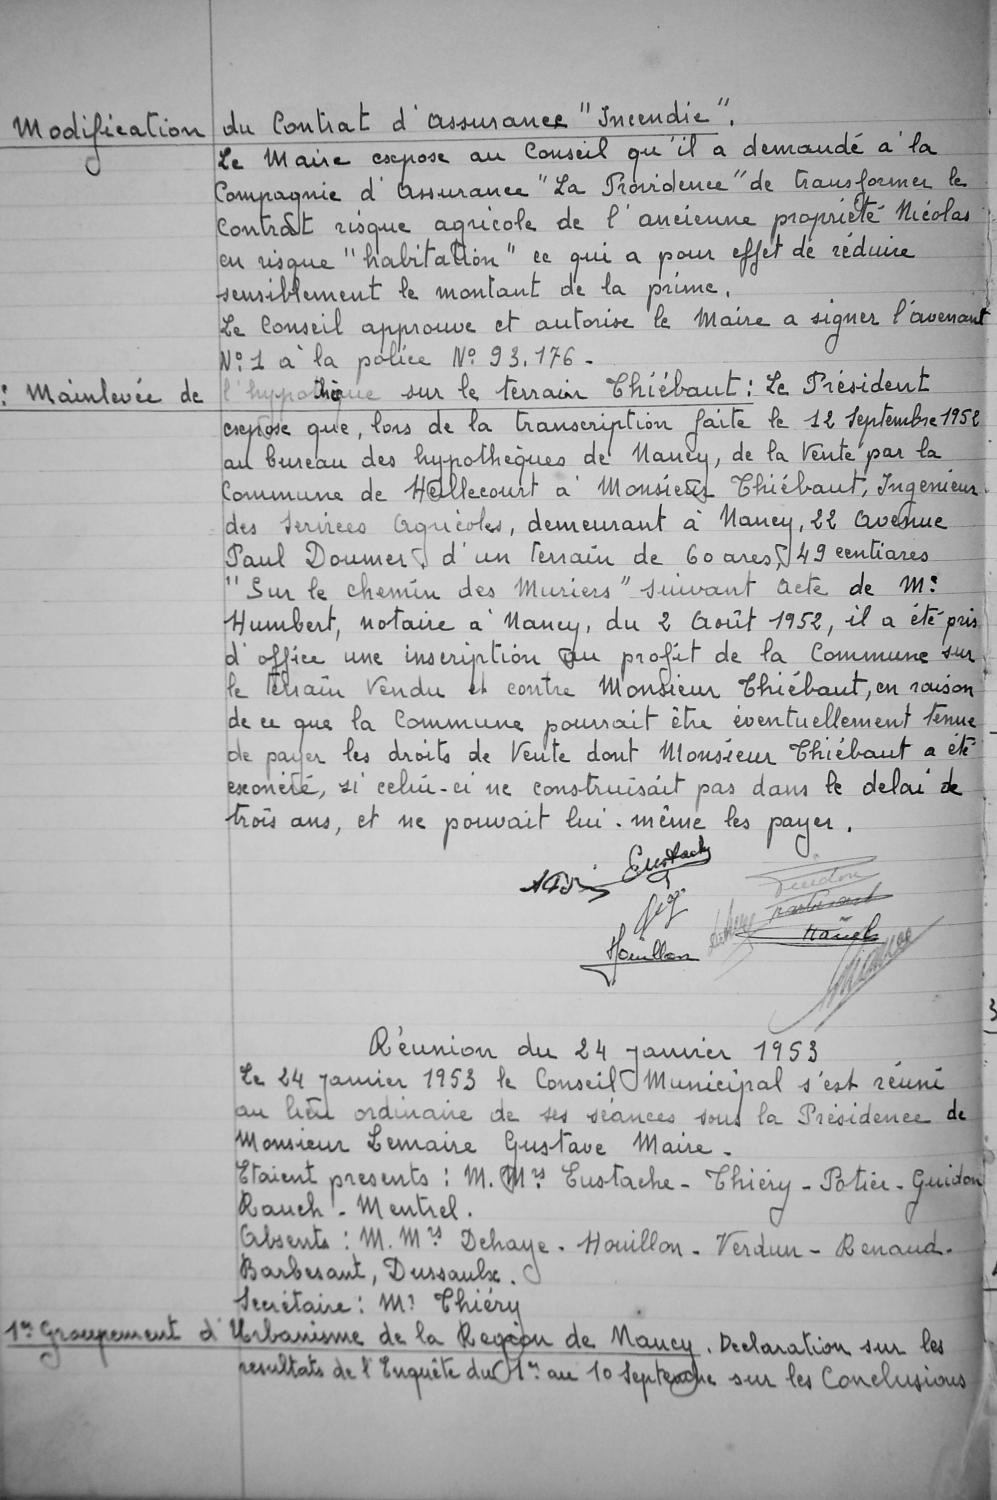 Modification du Contrat d'assurance "Incendie".
Le Maire expose au Conseil qu'il a demandé à la
Compagnie d'Assurance "La Providence" de transformer le
Contrat risque agricole de l'ancienne propriété Nicolas
en risque "habitation" ce qui a pour effet de réduire
sensiblement le montant de la prime.
Le Conseil approuve et autorise le Maire a signer l'avenant
N° 1 à la police N° 93.176 -
: Mainlevée de l'hypothèque sur le terrain Thiébaut : Le Président
expose que, lors de la transcription faite le 12 Septembre 1952
au bureau des hypothèques de Nancy, de la Vente par la
Commune de Heillecourt à Monsieur Thiébaut, Ingénieur
des Services Agricoles, demeurant à Nancy, 22 Avenue
Paul Doumer, d'un terrain de 60 ares, 49 centiares
"Sur le chemin des Muriers" suivant acte de Me
Humbert, notaire à Nancy, du 2 Août 1952, il a été pris
d'office une inscription au profit de la Commune sur
le terrain Vendu et contre Monsieur Thiébaut, en raison
de ce que la Commune pourrait être éventuellement tenue
de payer les droits de Vente dont Monsieur Thiébaut a été
exonéré, si celui-ci ne construisait pas dans le delai de
trois ans, et ne pouvait lui-même les payer.
Eustache
Guidon
Houillon
Réunion du 24 Janvier 1953
Le 24 Janvier 1953 le Conseil Municipal s'est réuni
au lieu ordinaire de ses séances sous la Présidence de
Monsieur Lemaire Gustave Maire -
Etaient presents : M. Mrs Eustache - Thiéry - Potier - Guidon
Rauch - Mentrel.
Absents : M. Mrs Dehaye - Houillon - Verdun - Renaud -
Barbesant, Dussaulx.
Secrétaire : Mr Thiéry
1er Groupement d'Urbanisme de la Region de Nancy. Declaration sur les
resultats de l'Enquête du 1er au 10 Septembre sur les Conclusions